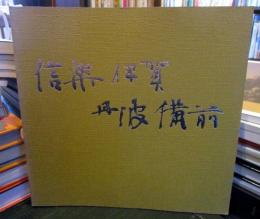 信楽伊賀
丹波備前